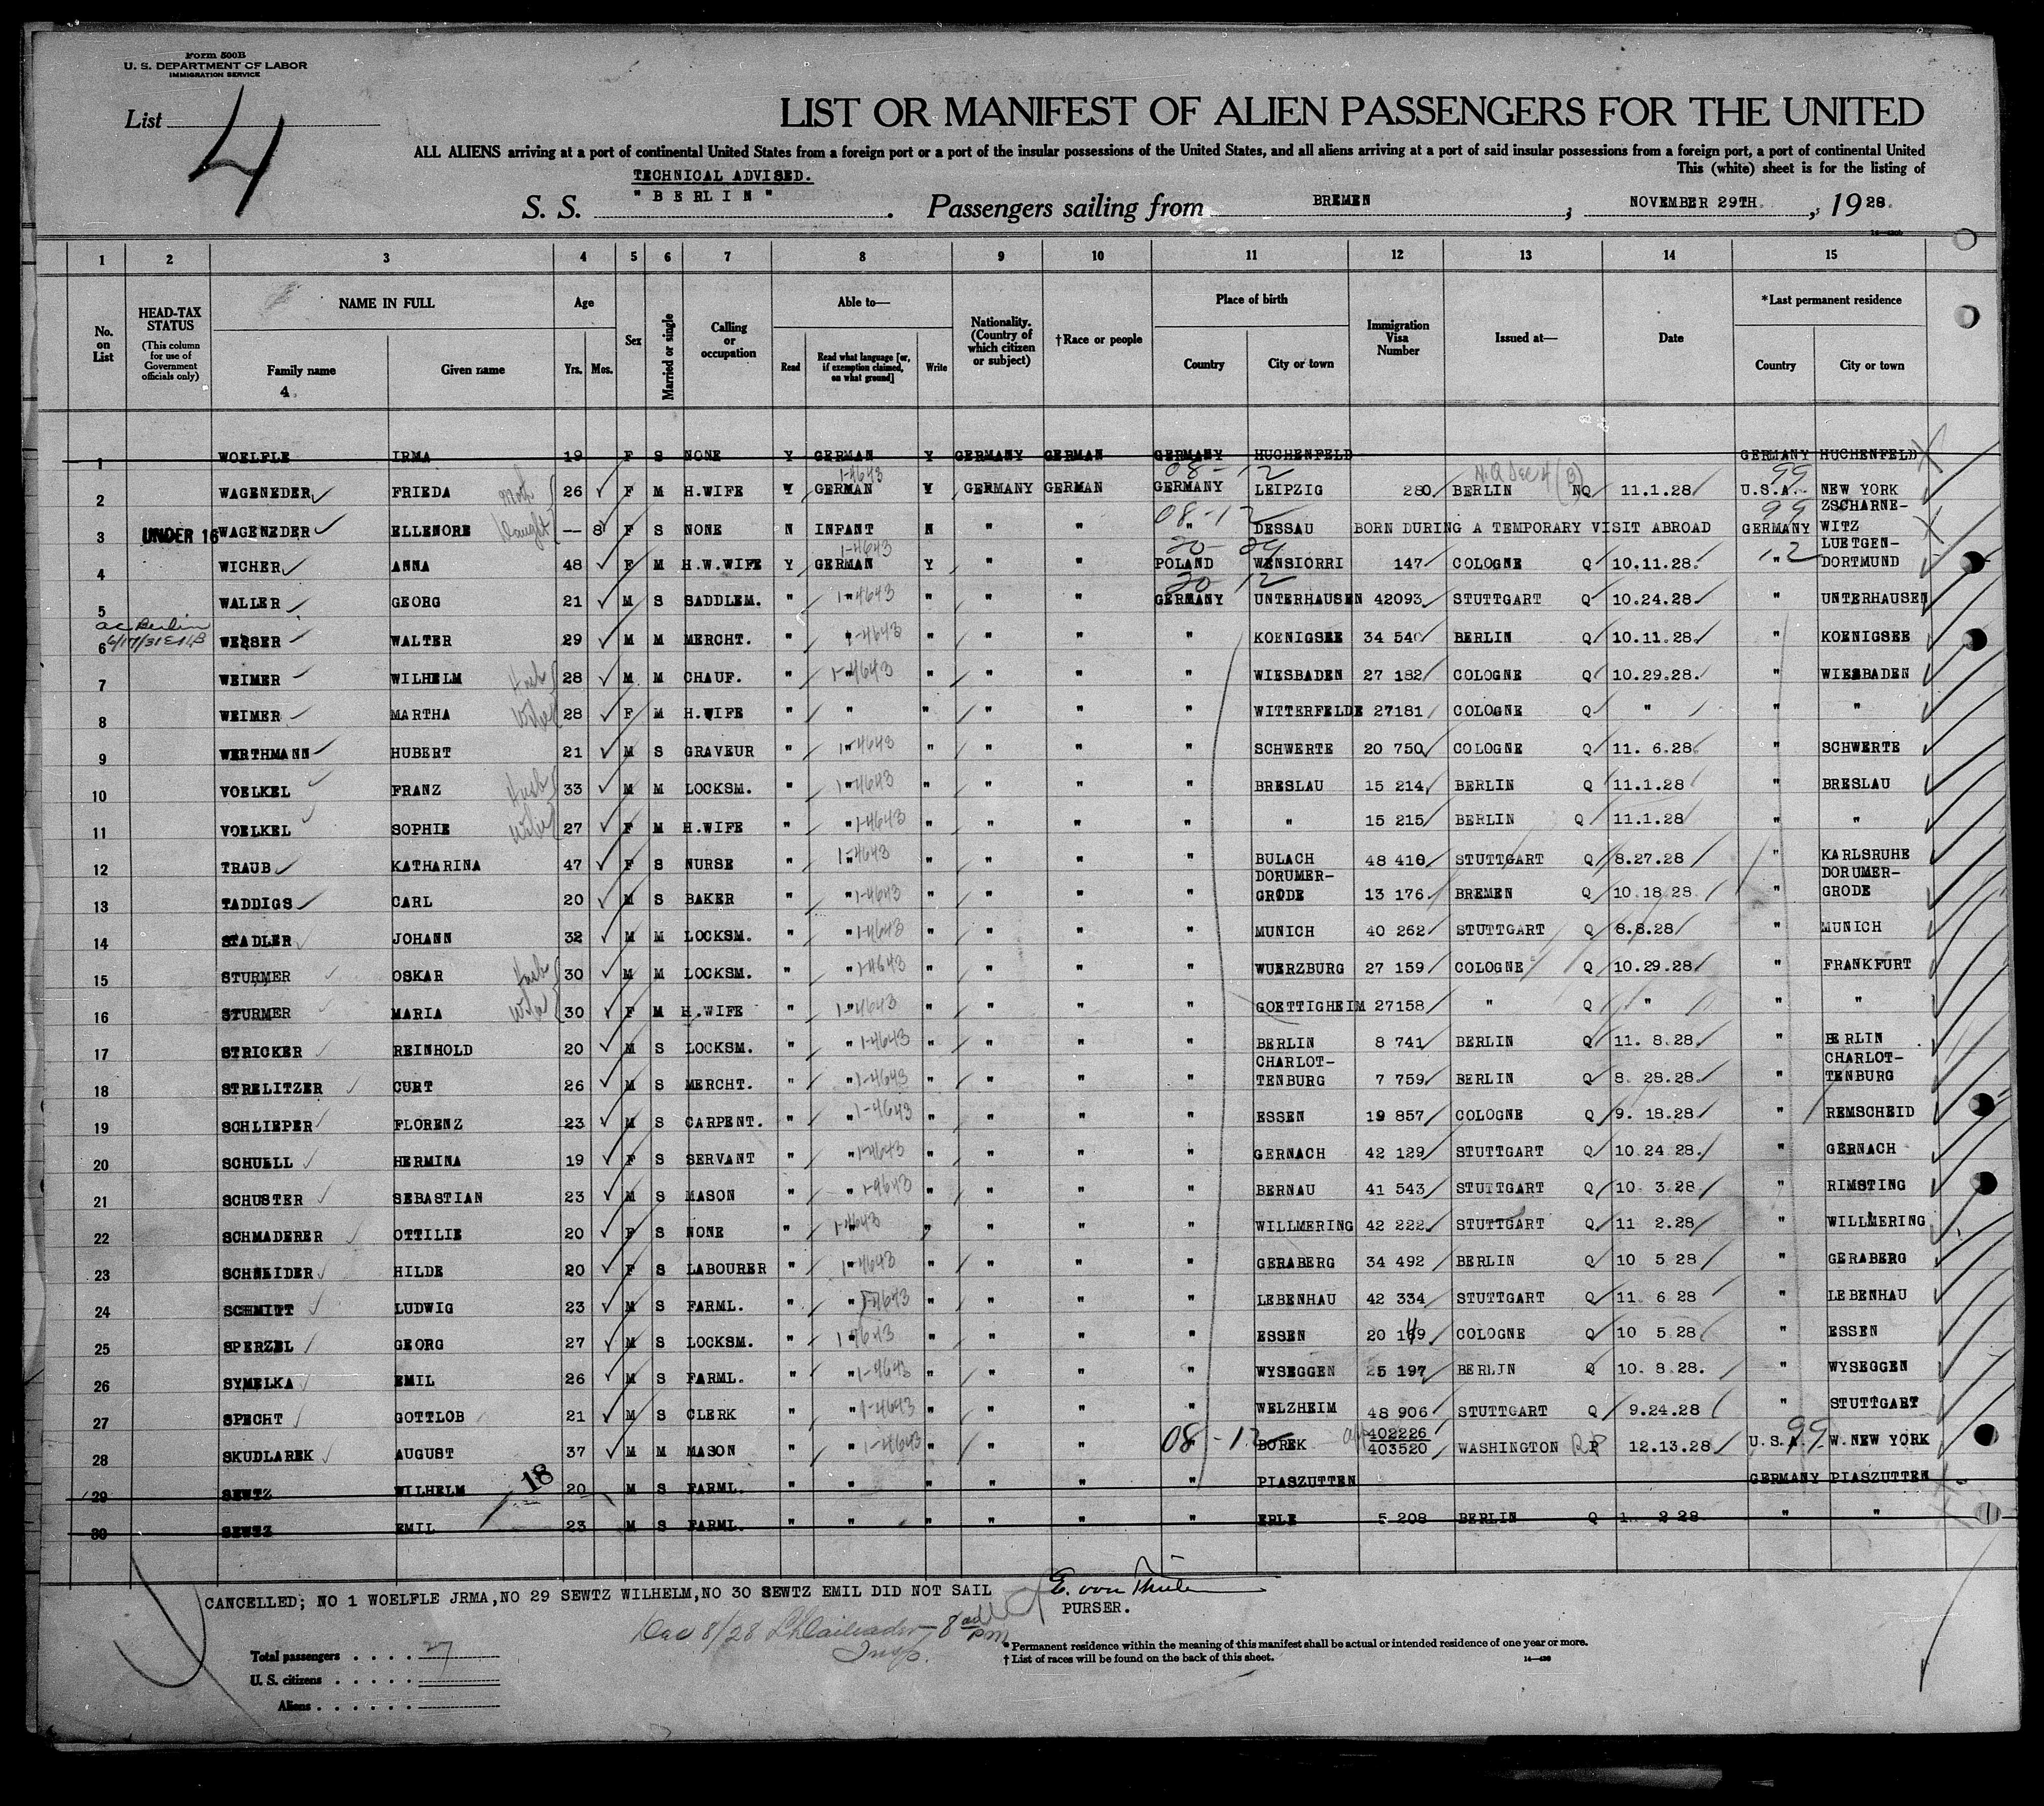 Form 500B
U. S. DEPARTMENT OF LABOR
IMMIGRATION SERVICE
List 4
LIST OR MANIFEST OF ALIEN PASSENGERS FOR THE UNITED
ALL ALIENS arriving at a port of continental United States from a foreign port or a port of the insular possessions of the United States, and all aliens arriving at a port of said insular possessions from a foreign port, a port of continental United
This (white) sheet is for the listing of
TECHNICAL ADVISED.
S. S. "BERLIN". Passengers sailing from BREMEN; NOVEMBER 29TH., 1928.
1 2 3 4 5 6 7 8 9 10 11 12 13 14 15
No. on List
HEAD-TAX STATUS (This column for use of Government officials only)
NAME IN FULL
Family name
4.
Given name
Age
Yrs. Mos.
Sex
Married or single
Calling or occupation
Able to—
Read
Read what language [or, if exemption claimed, on what ground]
Write
Nationality. (Country of which citizen or subject)
†Race or people
Place of birth
Country
City or town
Immigration Visa Number
Issued at—
Date
*Last permanent residence
Country
City or town
1 WOELFLE IRMA 19 F S NONE Y GERMAN Y GERMANY GERMAN GERMANY HUCHENFELD GERMANY HUCHENFELD
08-12 99
2 WAGENEDER FRIEDA 26 F M H.WIFE Y GERMAN 1-4643 Y GERMANY GERMAN GERMANY LEIPZIG 280 BERLIN NQ 11.1.28 U.S.A. NEW YORK
08-12 99
3 UNDER 16 WAGENEDER ELLENORE Daught — 8 F S NONE N INFANT N " " " DESSAU BORN DURING A TEMPORARY VISIT ABROAD GERMANY ZSCHARNE-WITZ
4 WICHER ANNA 48 F M H.W.WIFE Y GERMAN 1-4643 Y " " POLAND WENSIORRI 147 COLOGNE Q 10.11.28. " LUETGEN-DORTMUND
5 WALLER GEORG 21 M S SADDLEM. " " 1-4643 " " " GERMANY UNTERHAUSEN 42093 STUTTGART Q 10.24.28. " UNTERHAUSEN
6 WEESER WALTER 29 M M MERCHT. " " 1-4643 " " " " KOENIGSEE 34 540 BERLIN Q 10.11.28. " KOENIGSEE
7 WEIMER WILHELM Husb 28 M M CHAUF. " " 1-4643 " " " " WIESBADEN 27 182 COLOGNE Q 10.29.28. " WIESBADEN
8 WEIMER MARTHA Wife 28 F M H.WIFE " " " " " " WITTERFELDE 27181 COLOGNE Q " " "
9 WERTHMANN HUBERT 21 M S GRAVEUR " " 1-4643 " " " " SCHWERTE 20 750 COLOGNE Q 11. 6.28. " SCHWERTE
10 VOELKEL FRANZ Husb 33 M M LOCKSM. " " 1-4643 " " " " BRESLAU 15 214 BERLIN Q 11.1.28 " BRESLAU
11 VOELKEL SOPHIE Wife 27 F M H.WIFE " " 1-4643 " " " " " 15 215 BERLIN Q 11.1.28 " "
12 TRAUB KATHARINA 47 F S NURSE " " 1-4643 " " " " BULACH 48 410 STUTTGART Q 8.27.28 " KARLSRUHE
13 TADDIGS CARL 20 M S BAKER " " 1-4643 " " " " DORUMER-GRODE 13 176. BREMEN Q 10.18.28. " DORUMER-GRODE
14 STADLER JOHANN 32 M M LOCKSM. " " 1-4643 " " " " MUNICH 40 262 STUTTGART Q 8.8.28 " MUNICH
15 STURMER OSKAR Husb 30 M M LOCKSM. " " 1-4643 " " " " WUERZBURG 27 159 COLOGNE Q 10.29.28 " FRANKFURT
16 STURMER MARIA Wife 30 F M H.WIFE " " 1-4643 " " " " GOETTIGHEIM 27158 " Q " " "
17 STRICKER REINHOLD 20 M S LOCKSM. " " 1-4643 " " " " BERLIN 8 741 BERLIN Q 11. 8.28. " BERLIN
18 STRELITZER CURT 26 M S MERCHT. " " 1-4643 " " " " CHARLOT-TENBURG 7 759 BERLIN Q 8. 28.28. " CHARLOT-TENBURG
19 SCHLIEPER FLORENZ 23 M S CARPENT. " " 1-4643 " " " " ESSEN 19 857 COLOGNE Q 9. 18.28 " REMSCHEID
20 SCHUELL HERMINA 19 F S SERVANT " " 1-4643 " " " " GERNACH 42 129 STUTTGART Q 10.24 28. " GERNACH
21 SCHUSTER SEBASTIAN 23 M S MASON " " 1-4643 " " " " BERNAU 41 543 STUTTGART Q 10 3.28 " RIMSTING
22 SCHMADERER OTTILIE 20 F S NONE " " 1-4643 " " " " WILLMERING 42 222 STUTTGART Q 11 2.28 " WILLMERING
23 SCHNEIDER HILDE 20 F S LABOURER " " 1-4643 " " " " GERABERG 34 492 BERLIN Q 10 5 28 " GERABERG
24 SCHMITT LUDWIG 23 M S FARML. " " 1-4643 " " " " LEBENHAU 42 334 STUTTGART Q 11 6 28 " LEBENHAU
25 SPERZEL GEORG 27 M S LOCKSM. " " 1-4643 " " " " ESSEN 20 149 COLOGNE Q 10 5 28 " ESSEN
26 SYMELKA EMIL 26 M S FARML. " " 1-4643 " " " " WYSEGGEN 25 197 BERLIN Q 10. 8.28. " WYSEGGEN
27 SPECHT GOTTLOB 21 M S CLERK " " 1-4643 " " " " WELZHEIM 48 906 STUTTGART Q 9.24.28 " STUTTGART
08-12 99
28 SKUDLAREK AUGUST 37 M M MASON " " 1-4643 " " " " BOREK 402226 403520 WASHINGTON RP 12.13.28 U.S.A. W.NEW YORK
29 SEWTZ WILHELM 18 20 M S FARML. " " " " " " PIASZUTTEN GERMANY PIASZUTTEN
30 SEWTZ EMIL 23 M S FARML. " " " " " " ERLE 5 208 BERLIN Q 1. 2 28 " "
CANCELLED; NO 1 WOELFLE JRMA,NO 29 SEWTZ WILHELM,NO 30 SEWTZ EMIL DID NOT SAIL
PURSER.
Dec 8/28
Insp.
Total passengers . . . . 27
U. S. citizens . . . . .
Aliens . . . . . .
* Permanent residence within the meaning of this manifest shall be actual or intended residence of one year or more.
† List of races will be found on the back of this sheet.